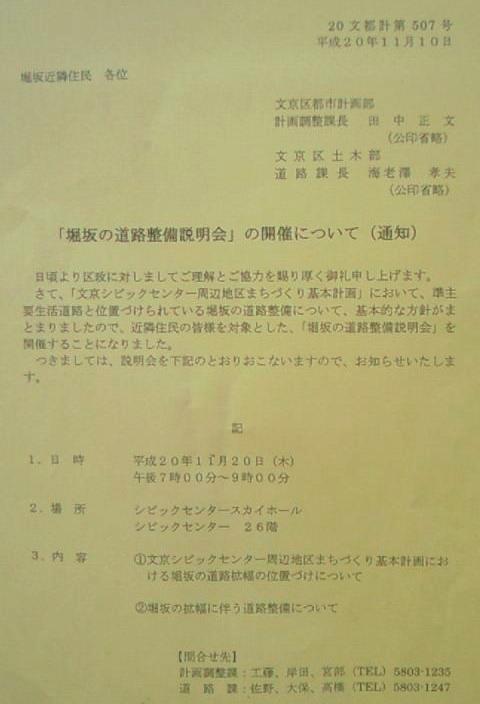 20文都計第507号
平成20年11月10日
堀坂近隣住民 各位
文京区都市計画部
計画調整課長 田中正文
(公印省略)
文京区土木部
道路課長 海老澤 孝夫
(公印省略)
「堀坂の道路整備説明会」の開催について(通知)
日頃より区政に対しましてご理解とご協力を賜り厚く御礼申し上げます。
さて、「文京シビックセンター周辺地区まちづくり基本計画」において、準主
要生活道路と位置づけられている堀坂の道路整備について、基本的な方針がま
とまりましたので、近隣住民の皆様を対象とした、「堀坂の道路整備説明会」を
開催することになりました。
つきましては、説明会を下記のとおりおこないますので、お知らせいたしま
す。
記
1.日時 平成20年11月20日(木)
午後7時00分~9時00分
2.場所 シビックセンタースカイホール
シビックセンター 26階
3.内容 ①文京シビックセンター周辺地区まちづくり基本計画にお
ける堀坂の道路拡幅の位置づけについて
②堀坂の拡幅に伴う道路整備について
【問合せ先】
計画調整課:工藤、岸田、宮部(TEL)5803-1235
道路課:佐野、大保、高橋(TEL)5803-1247